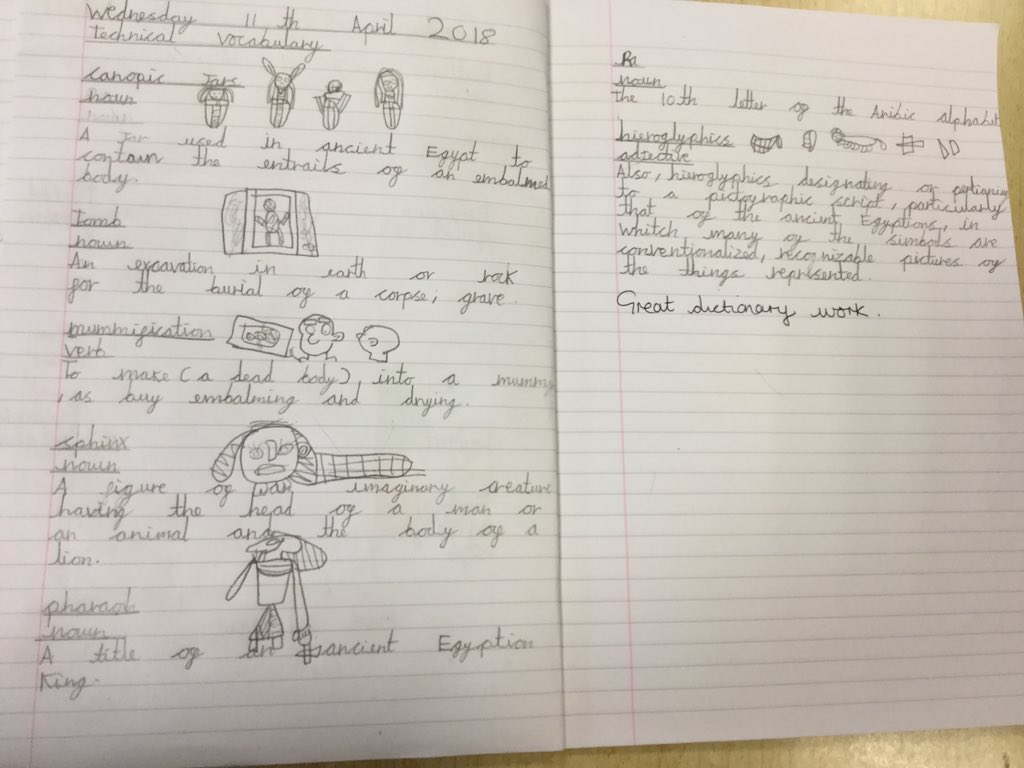 Wednesday 11th April 2018
technical vocabulary
canopic Jars
noun
A Jar used in ancient Egypt to
contain the entrails of an embalmed
body.
tomb
noun
An excavation in earth or rock
for the burial of a corpse; grave.
mummification
verb
To make (a dead body), into a mummy
, as buy embalming and drying.
sphinx
noun
A figure of an imaginary creature
having the head of a man or
an animal and the body of a
lion.
pharaoh
noun
A title of an ancient Egyption
King.
Ra
noun
The 10th letter of the Aribic alphabet
hieroglyphics
adjective
Also, hieroglyphics designating or pertianing
to a pictographic script, particularly
that of the ancient Egyptions, in
whitch many of the simbols are
conventionalized, recognizable pictures of
the things represented.
Great dictionary work.